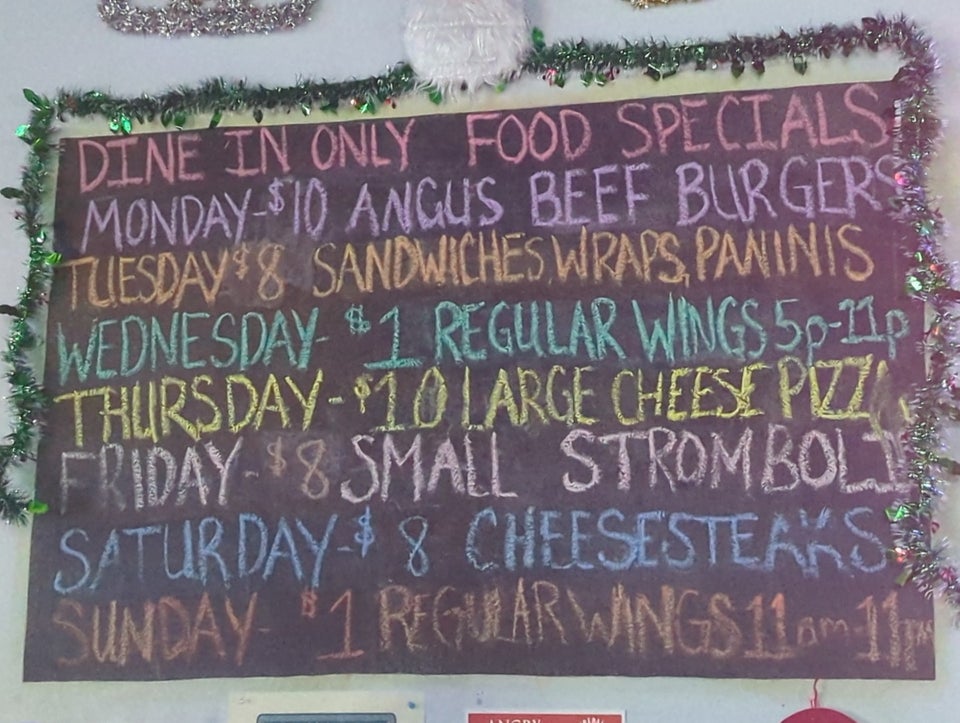 DINE IN ONLY FOOD SPECIALS
MONDAY-$10 ANGUS BEEF BURGERS
TUESDAY $8 SANDWICHES, WRAPS, PANINIS
WEDNESDAY- $1 REGULAR WINGS 5p-11p
THURSDAY-$10 LARGE CHEESE PIZZA
FRIDAY-$8 SMALL STROMBOLI
SATURDAY-$8 CHEESESTEAKS
SUNDAY- $1 REGULAR WINGS 11am-11pm
ANGRY